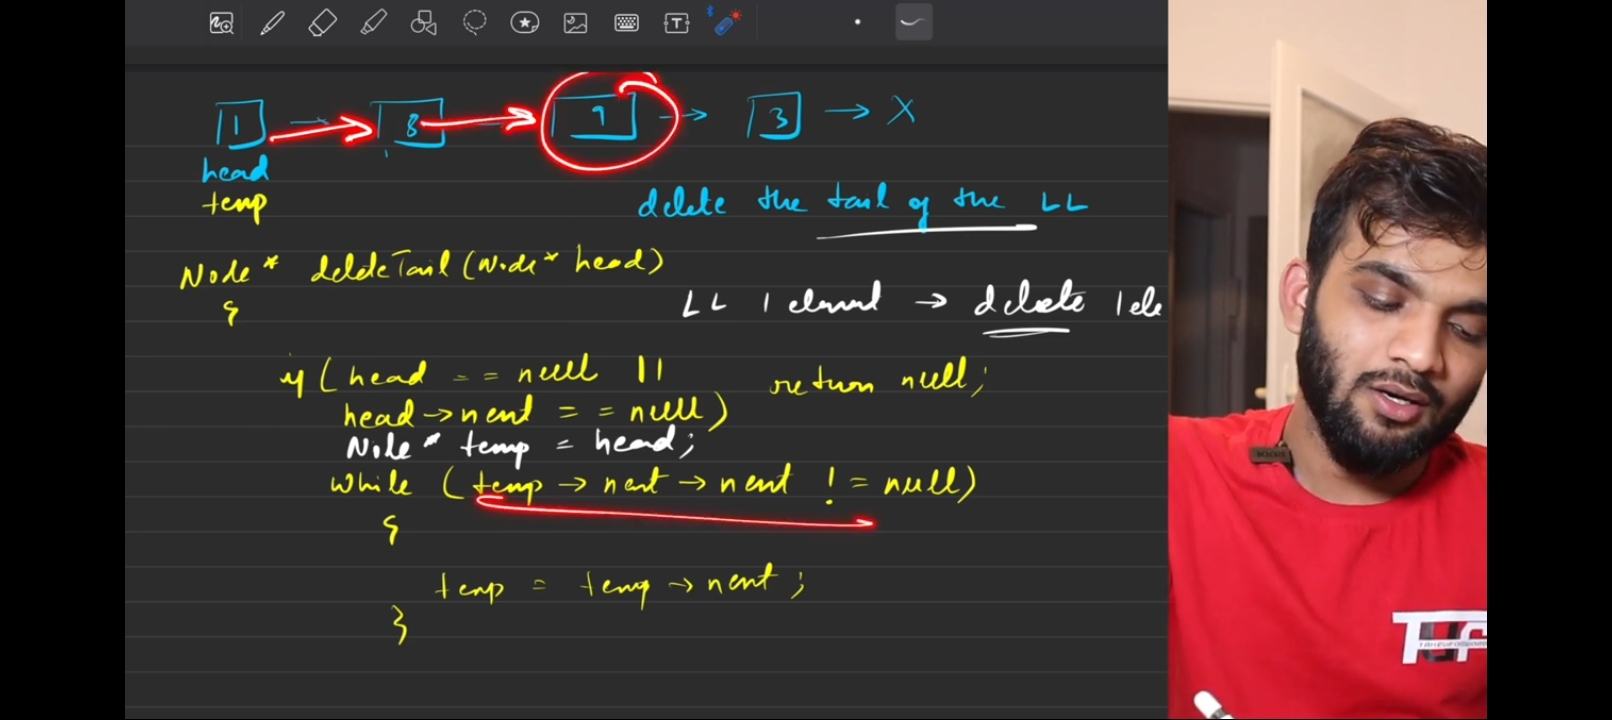 1 → 8 → 9 → 3 → X
head
temp
delete the tail of the LL
Node * deleteTail (Node * head)
{
LL 1 element → delete 1 ele
if ( head == null || return null;
head → next == null )
Node * temp = head;
while ( temp → next → next != null )
{
temp = temp → next ;
}
TUF